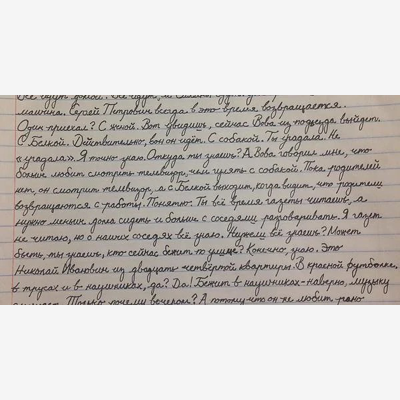 все идут домой. Все идут, а
машина. Сергей Петрович всегда в это время возвращается.
Один приехал? С женой. Вот увидишь, сейчас Вова из подъезда выйдет.
С Белкой. Действительно, вон он идёт. С собакой. Ты угадала. Не
«угадала». Я точно знаю. Откуда ты знаешь? А Вова говорил мне, что
больше любит смотреть телевизор, чем гулять с собакой. Пока родителей
нет, он смотрит телевизор, а с Белкой выходит, когда видит, что родители
возвращаются с работы. Понятно. Ты всё время газеты читаешь, а
нужно меньше дома сидеть и больше с соседями разговаривать. Я газет
не читаю, но о наших соседях всё знаю. Неужели всё знаешь? Может
быть, ты знаешь, кто сейчас бежит по улице? Конечно, знаю. Это
Николай Иванович из двадцать четвёртой квартиры. В красной футболке,
в трусах и в наушниках, да? Да! Бежит в наушниках - наверно, музыку
слушает. Только почему вечером? А потому что он не любит рано